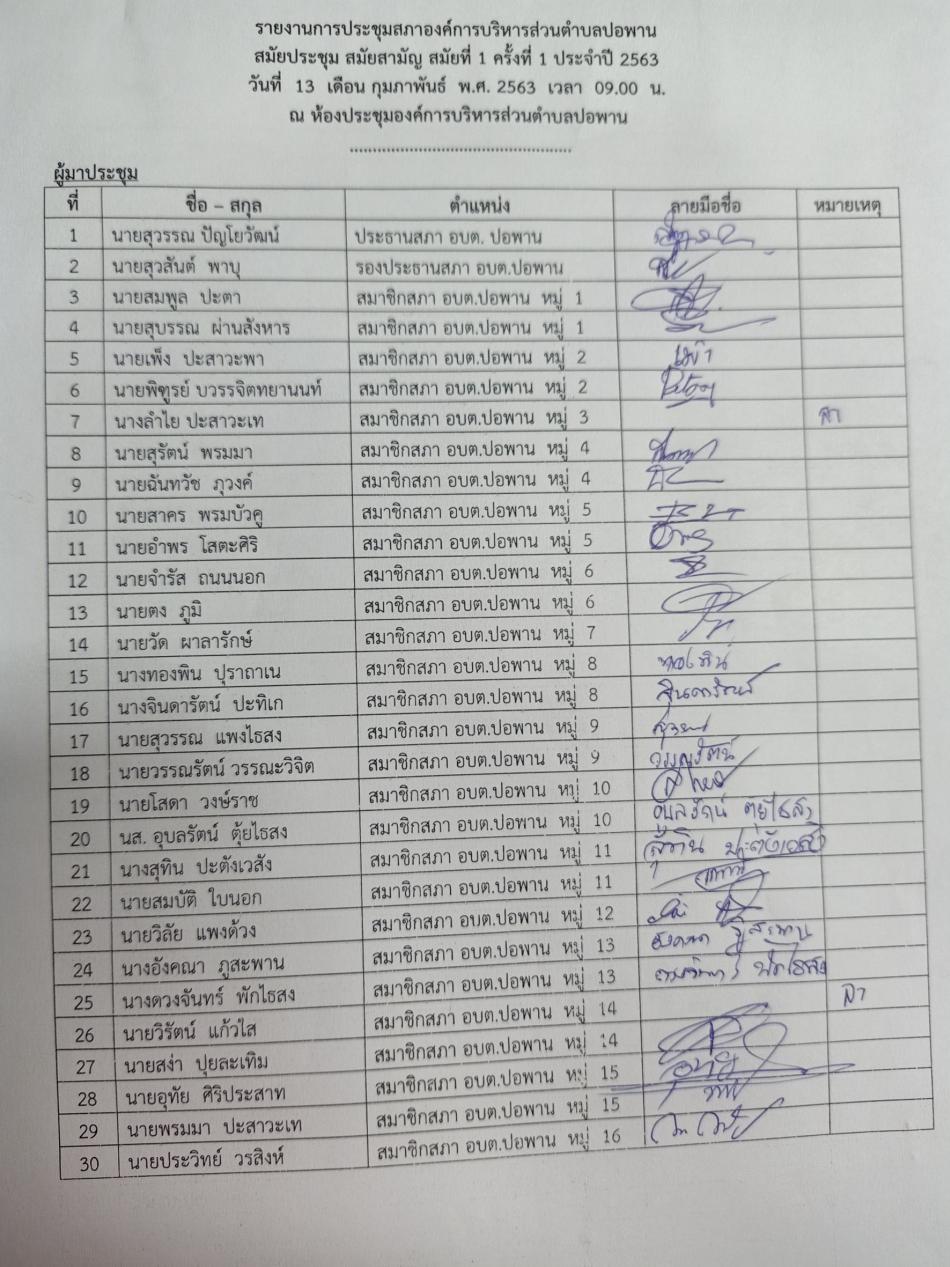 รายงานการประชุมสภาองค์การบริหารส่วนตำบลปอพาน
สมัยประชุม สมัยสามัญ สมัยที่ 1 ครั้งที่ 1 ประจำปี 2563
วันที่ 13 เดือน กุมภาพันธ์ พ.ศ. 2563 เวลา 09.00 น.
ณ ห้องประชุมองค์การบริหารส่วนตำบลปอพาน
ผู้มาประชุม
ที่ ชื่อ – สกุล ตำแหน่ง ลายมือชื่อ หมายเหตุ
1 นายสุวรรณ ปัญโยวัฒน์ ประธานสภา อบต. ปอพาน
2 นายสุวสันต์ พาบุ รองประธานสภา อบต.ปอพาน
3 นายสมพูล ปะตา สมาชิกสภา อบต.ปอพาน หมู่ 1
4 นายสุบรรณ ผ่านสังหาร สมาชิกสภา อบต.ปอพาน หมู่ 1
5 นายเพ็ง ปะสาวะพา สมาชิกสภา อบต.ปอพาน หมู่ 2
6 นายพิฑูรย์ บวรรจิตทยานนท์ สมาชิกสภา อบต.ปอพาน หมู่ 2
7 นางลำไย ปะสาวะเท สมาชิกสภา อบต.ปอพาน หมู่ 3 ลา
8 นายสุรัตน์ พรมมา สมาชิกสภา อบต.ปอพาน หมู่ 4
9 นายฉันทวัช ภูวงค์ สมาชิกสภา อบต.ปอพาน หมู่ 4
10 นายสาคร พรมบัวคู สมาชิกสภา อบต.ปอพาน หมู่ 5
11 นายอำพร โสตะศิริ สมาชิกสภา อบต.ปอพาน หมู่ 5
12 นายจำรัส ถนนนอก สมาชิกสภา อบต.ปอพาน หมู่ 6
13 นายตง ภูมิ สมาชิกสภา อบต.ปอพาน หมู่ 6
14 นายวัด ผาลารักษ์ สมาชิกสภา อบต.ปอพาน หมู่ 7
15 นางทองพิน ปุราถาเน สมาชิกสภา อบต.ปอพาน หมู่ 8 ทองพิน
16 นางจินดารัตน์ ปะทิเก สมาชิกสภา อบต.ปอพาน หมู่ 8 จินดารัตน์
17 นายสุวรรณ แพงไธสง สมาชิกสภา อบต.ปอพาน หมู่ 9
18 นายวรรณรัตน์ วรรณะวิจิต สมาชิกสภา อบต.ปอพาน หมู่ 9
19 นายโสดา วงษ์ราช สมาชิกสภา อบต.ปอพาน หมู่ 10
20 นส. อุบลรัตน์ ตุ้ยไธสง สมาชิกสภา อบต.ปอพาน หมู่ 10 อุบลรัตน์ ตุ้ยไธสง
21 นางสุทิน ปะตังเวสัง สมาชิกสภา อบต.ปอพาน หมู่ 11 สุทิน ปะตังเวสัง
22 นายสมบัติ ใบนอก สมาชิกสภา อบต.ปอพาน หมู่ 11
23 นายวิลัย แพงด้วง สมาชิกสภา อบต.ปอพาน หมู่ 12
24 นางอังคณา ภูสะพาน สมาชิกสภา อบต.ปอพาน หมู่ 13 อังคณา ภูสะพาน
25 นางดวงจันทร์ พักไธสง สมาชิกสภา อบต.ปอพาน หมู่ 13 ดวงจันทร์ พักไธสง
26 นายวิรัตน์ แก้วใส สมาชิกสภา อบต.ปอพาน หมู่ 14 ลา
27 นายสง่า ปุยละเทิม สมาชิกสภา อบต.ปอพาน หมู่ 14
28 นายอุทัย ศิริประสาท สมาชิกสภา อบต.ปอพาน หมู่ 15
29 นายพรมมา ปะสาวะเท สมาชิกสภา อบต.ปอพาน หมู่ 15
30 นายประวิทย์ วรสิงห์ สมาชิกสภา อบต.ปอพาน หมู่ 16